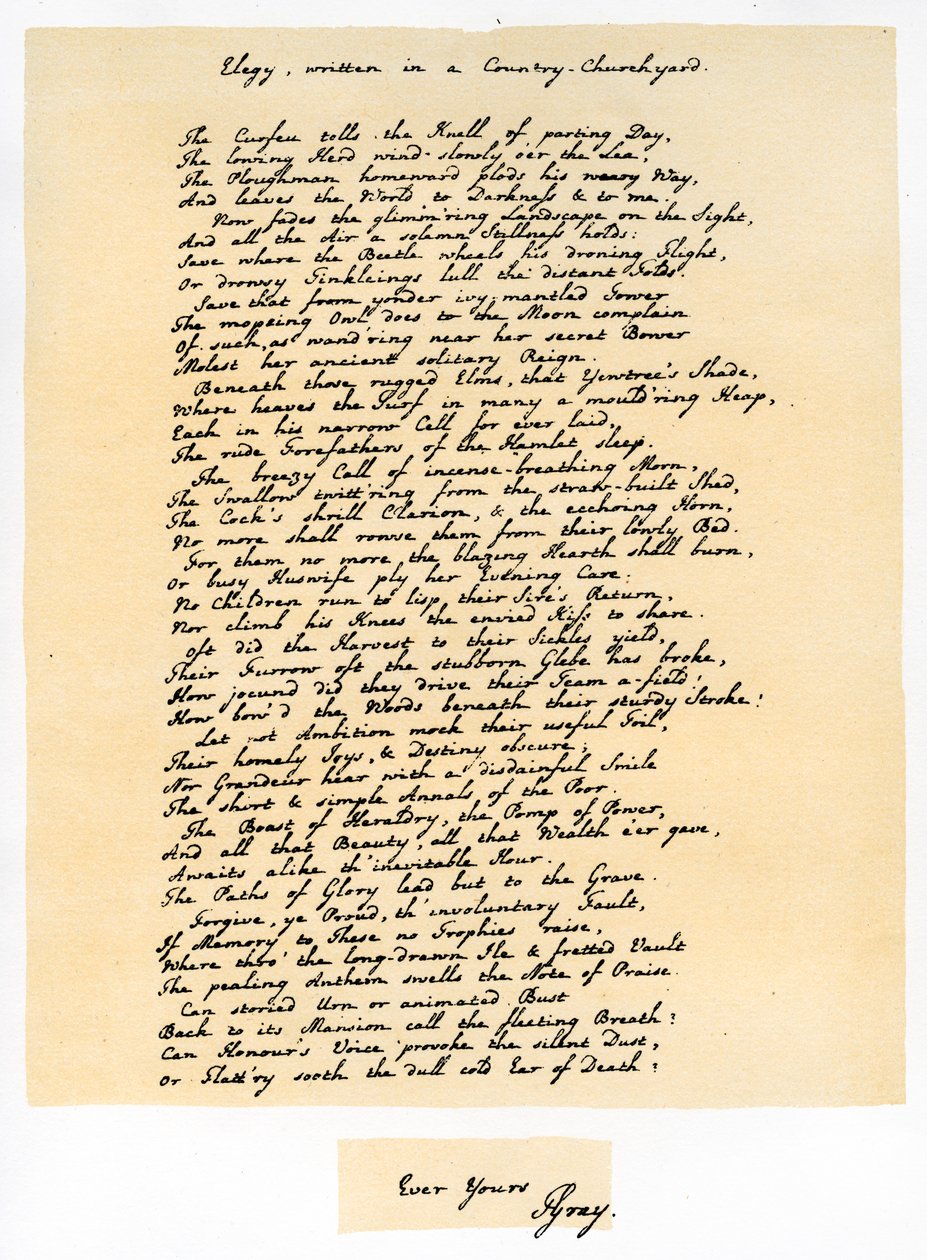 Elegy, written in a Country-Churchyard.
The Curfeu tolls the Knell of parting Day,
The lowing Herd wind slowly o'er the Lea,
The Ploughman homeward plods his weary Way,
And leaves the World to Darkness & to me.
Now fades the glimm'ring Landscape on the Sight,
And all the Air a solemn Stillness holds:
Save where the Beetle wheels his droning Flight,
Or drowsy Tinkleings lull the distant Folds.
Save that from yonder ivy-mantled Tower
The mopeing Owl does to the Moon complain
Of such, as wand'ring near her secret Bower
Molest her ancient solitary Reign.
Beneath those rugged Elms, that Yewtree's Shade,
Where heaves the Turf in many a mould'ring Heap,
Each in his narrow Cell for ever laid,
The rude Forefathers of the Hamlet sleep.
The breezy Call of incense-breathing Morn,
The Swallow twitt'ring from the straw-built Shed,
The Cock's shrill Clarion, & the ecchoing Horn,
No more shall rouse them from their lowly Bed.
For them no more the blazing Hearth shall burn,
Or busy Huswife ply her Evening Care:
No Children run to lisp their Sire's Return,
Nor climb his Knees the envied Kiss to share.
Oft did the Harvest to their Sickles yield,
Their Furrow oft the stubborn Glebe has broke,
How jocund did they drive their Team a-field!
How bow'd the Woods beneath their sturdy Stroke!
Let not Ambition mock their useful Toil,
Their homely Joys, & Destiny obscure;
Nor Grandeur hear with a disdainful Smile
The short & simple Annals of the Poor.
The Boast of Heraldry, the Pomp of Power,
And all that Beauty, all that Wealth e'er gave,
Awaits alike th' inevitable Hour.
The Paths of Glory lead but to the Grave.
Forgive, ye Proud, th' involuntary Fault,
If Memory to These no Trophies raise,
Where thro' the long-drawn Ile & fretted Vault
The pealing Anthem swells the Note of Praise.
Can storied Urn or animated Bust
Back to its Mansion call the fleeting Breath?
Can Honour's Voice provoke the silent Dust,
Or Flatt'ry sooth the dull cold Ear of Death?
Ever Yours
TGray.